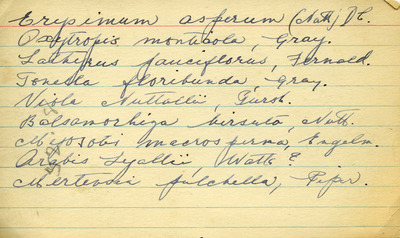 Erysimum asperum (Nutt) DC.
Oxytropis monticola, Gray.
Lathyrus pauciflorus, Fernald.
Tonella floribunda, Gray.
Viola Nuttallii, Pursh.
Balsamorhiza hirsuta, Nutt.
Myosotis macrosperma, Engelm.
Arabis Lyallii, Wats ?
Mertensia pulchella, Piper.